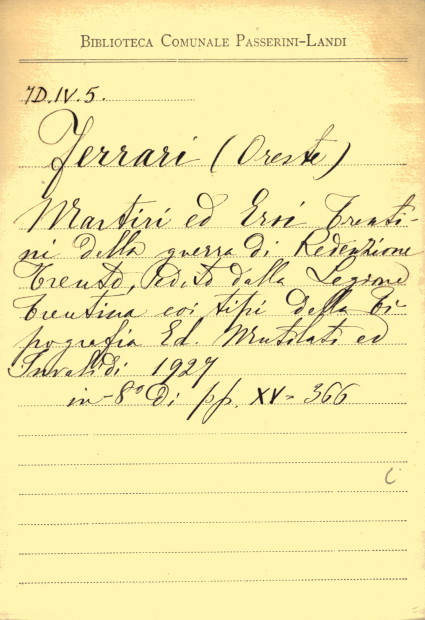 BIBLIOTECA COMUNALE PASSERINI-LANDI
7D.IV.5.
Ferrari (Oreste)
Martiri ed Eroi Trenti-
ni della guerra di Redenzione
Trento, Edito dalla Legione
Trentina coi tipi della Ti-
pografia Ed. Mutilati ed
Invalidi 1927
in-8° di pp. XV-366
C